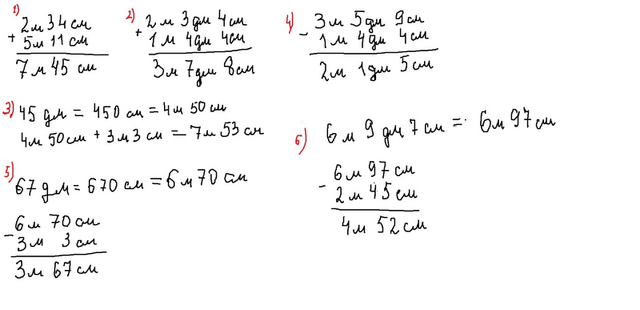 1)
2 м 34 см
+
5 м 11 см
7 м 45 см
2)
2 м 3 дм 4 см
+
1 м 4 дм 4 см
3 м 7 дм 8 см
4)
3 м 5 дм 9 см
-
1 м 4 дм 4 см
2 м 1 дм 5 см
3) 45 дм = 450 см = 4 м 50 см
4 м 50 см + 3 м 3 см = 7 м 53 см
5) 67 дм = 670 см = 6 м 70 см
6 м 70 см
-
3 м 3 см
3 м 67 см
6) 6 м 9 дм 7 см = 6 м 97 см
6 м 97 см
-
2 м 45 см
4 м 52 см